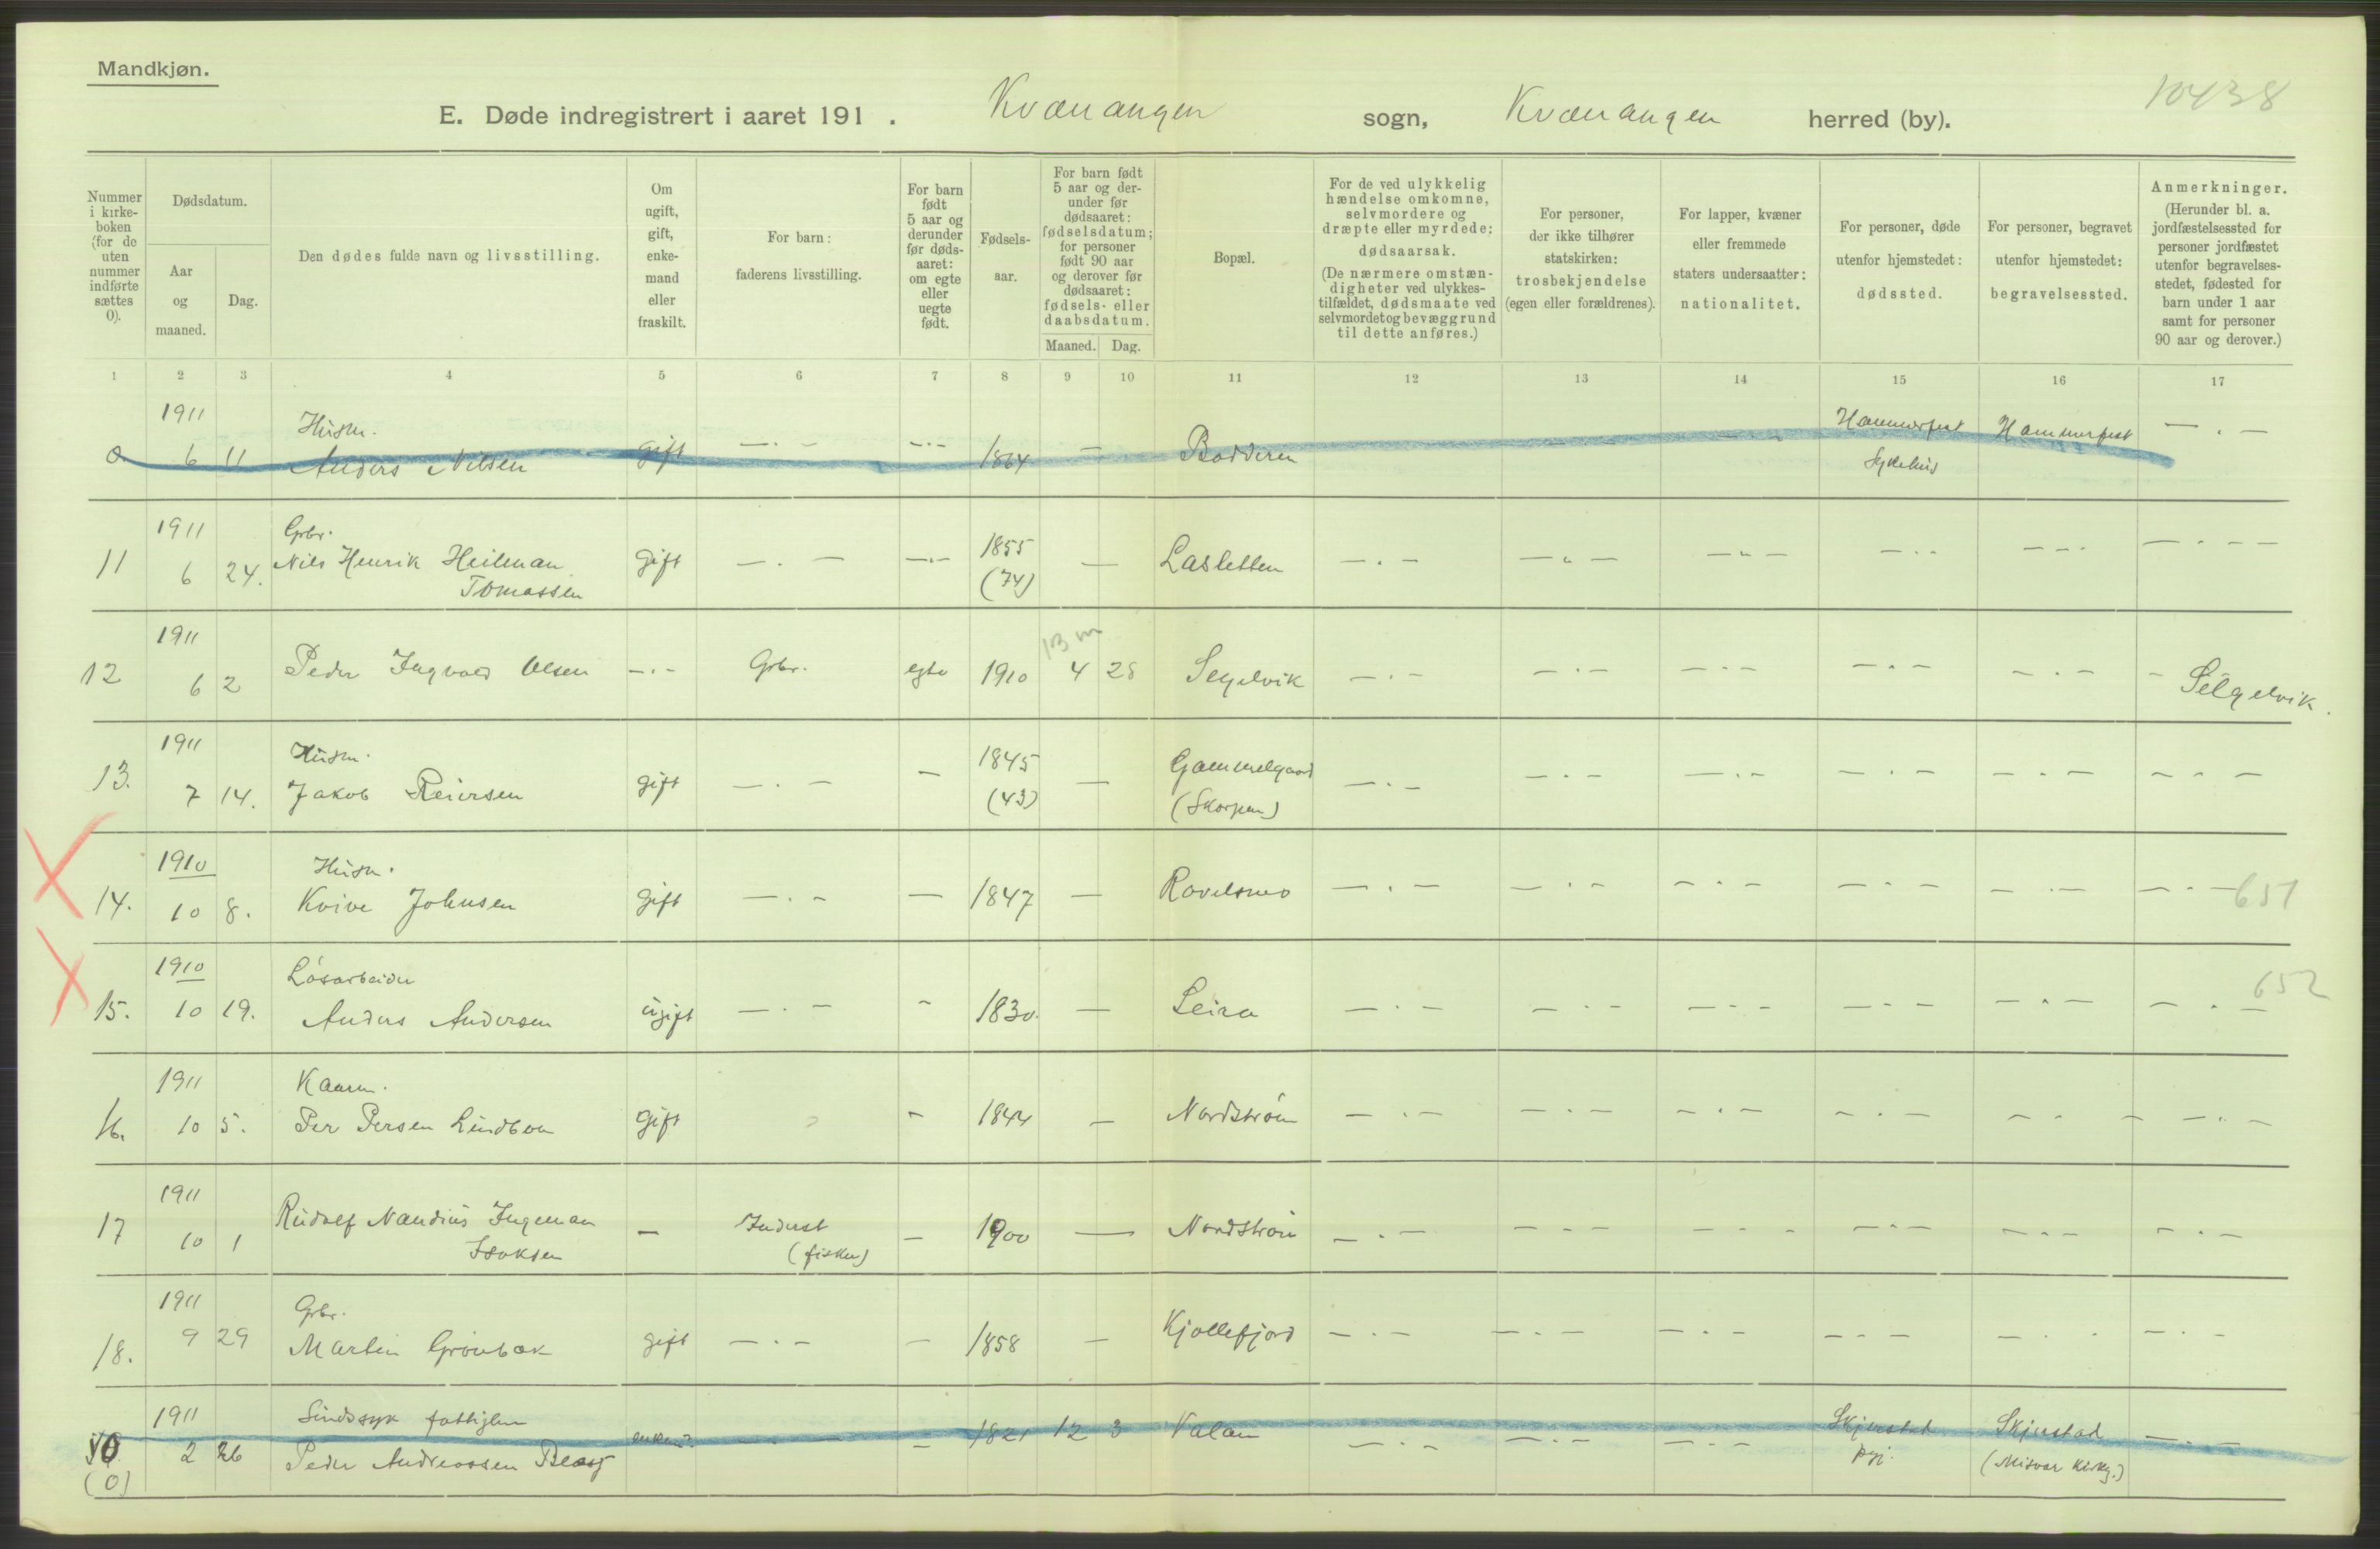 Mandkjøn.
10438
E. Døde indregistrert i aaret 191 . Kvænangen sogn, Kvænangen herred (by).
Nummer i kirkeboken (for de uten nummer indførte sættes 0).
Dødsdatum.
Aar og maaned.
Dag.
Den dødes fulde navn og livsstilling.
Om ugift, gift, enkemand eller fraskilt.
For barn: faderens livsstilling.
For barn født 5 aar og derunder før dødsaaret: om egte eller uegte født.
Fødselsaar.
For barn født 5 aar og derunder før dødsaaret: fødselsdatum; for personer født 90 aar og derover før dødsaaret: fødsels- eller daabsdatum.
Maaned. Dag.
Bopæl.
For de ved ulykkelig hændelse omkomne, selvmordere og dræpte eller myrdede; dødsaarsak. (De nærmere omstændigheter ved ulykkestilfældet, dødsmaate ved selvmordet og bevæggrund til dette anføres.)
For personer, der ikke tilhører statskirken: trosbekjendelse (egen eller forældrenes).
For lapper, kvæner eller fremmede staters undersaatter: nationalitet.
For personer, døde utenfor hjemstedet: dødssted.
For personer, begravet utenfor hjemstedet: begravelsessted.
Anmerkninger. (Herunder bl. a. jordfæstelsessted for personer jordfæstet utenfor begravelsesstedet, fødested for barn under 1 aar samt for personer 90 aar og derover.)
1 2 3 4 5 6 7 8 9 10 11 12 13 14 15 16 17
1911 Husm. Hammerfest Hammerfest
0. 6 11 Anders Nilsen gift 1864 Badderen Sykehus
1911 Grbr. 1855
11 6 24. Nils Henrik Heilman gift (74) Lasletten
Tomassen
1911 13 m
12 6 2 Peder Ingvald Olsen Grbr. egte 1910 4 28 Segelvik Segelvik.
1911 Husm. 1845 Gammelgaard
13. 7 14. Jakob Reiersen gift (43) (Skorpen)
1910 Husm.
14. 10 8. Kvive Johnsen gift 1847 651
1910 Løsarbeider
15. 10 19. Anders Andersen ugift 1830. Leira 652
1911 Kaarm.
16. 10 5. Per Persen Lindbom gift 1844 Nordstrøm
1911
17 10 1 Rudolf Nandius Ingeman Inderst 1900 Nordstrøm
Isaksen (fisker)
1911 Grbr.
18. 9 29 Martin Grønbæk gift 1858 Kjollefjord
1911 Sindssyk fattiglem Skjerstad Skjerstad
0 2 26 Peder Andreassen 1821 12 3 Valan pgj. (Misvær kirkg.)
(0)